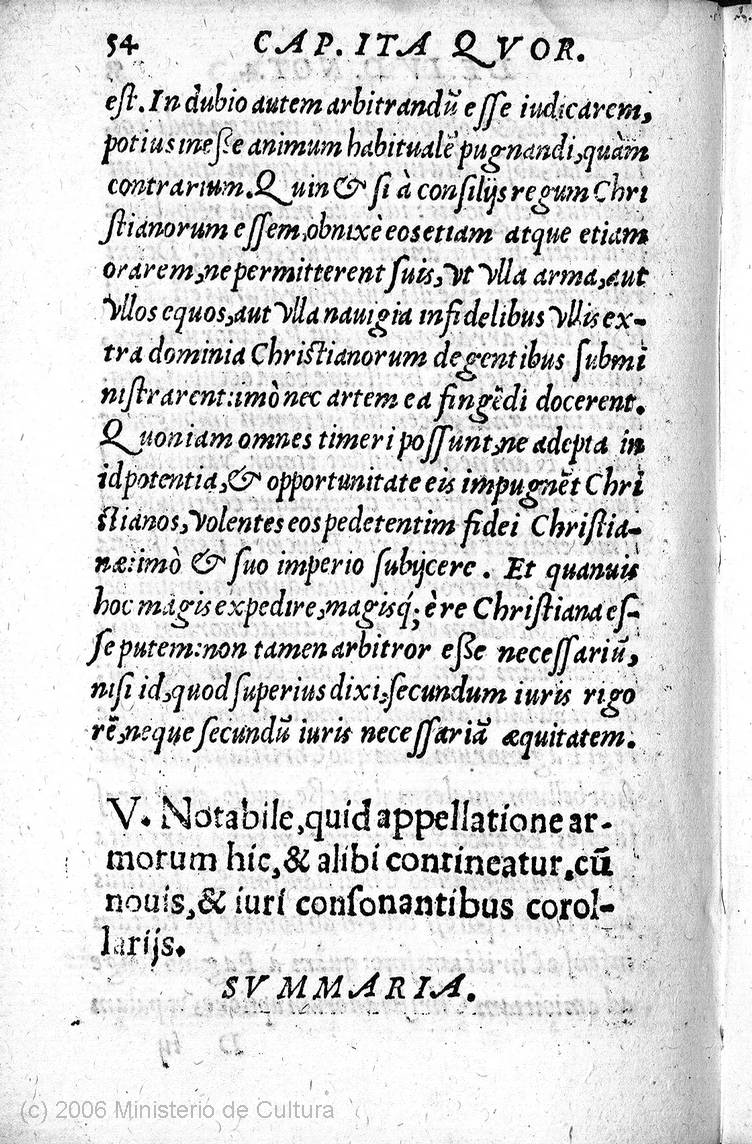 54 CAP. ITA QVOR.
est. In dubio autem arbitrandũ esse iudicarem,
potius inesse animum habitualẽ pugnandi, quàm
contrarium. Quin & si à consilijs regum Chri
stianorum essem, obnixè eos etiam atque etiam
orarem, ne permitterent suis, vt vlla arma, aut
vllos equos, aut vlla nauigia infidelibus vllis ex-
tra dominia Christianorum degentibus submi
nistrarent: imò nec artem ea fingẽdi docerent.
Quoniam omnes timeri possunt, ne adepta in
id potentia, & opportunitate eis impugnẽt Chri
stianos, volentes eos pedetentim fidei Christia-
næ: imò & suo imperio subijcere. Et quanuis
hoc magis expedire, magisq́; è re Christiana es-
se putem: non tamen arbitror esse necessariũ,
nisi id, quod superius dixi, secundum iuris rigo
rẽ, neque secundũ iuris necessariã æquitatem.
V. Notabile, quid appellatione ar-
morum hic, & alibi contineatur, cũ
nouis, & iuri consonantibus corol-
larijs.
SVMMARIA.
(c) 2006 Ministerio de Cultura